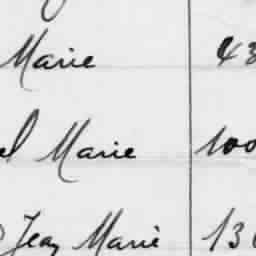 Marie 43
el Marie 100
Jean Marie 13